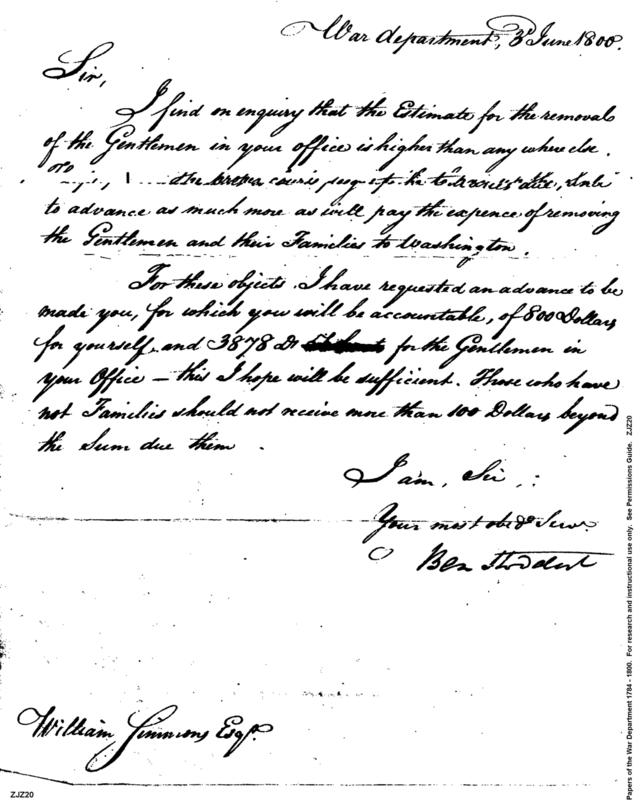 War department, 3d June 1800.
Sir,
I find on enquiry that the Estimate for the removal
of the Gentlemen in your office is higher than any where else.
the proper course to be
to advance as much more as will pay the expence of removing
the Gentlemen and their Families to Washington.
For these objects I have requested an advance to be
made you, for which you will be accountable, of 800 Dollars
for yourself, and 3878 Ds for the Gentlemen in
your Office — this I hope will be sufficient. Those who have
not Families should not receive more than 100 Dollars beyond
the Sum due them.
I am, Sir,
Your most obedt Servt
Ben Stoddert
William Simmons Esqr.
ZJZ20
Papers of the War Department 1784 - 1800. For research and instructional use only. See Permissions Guide. ZJZ20